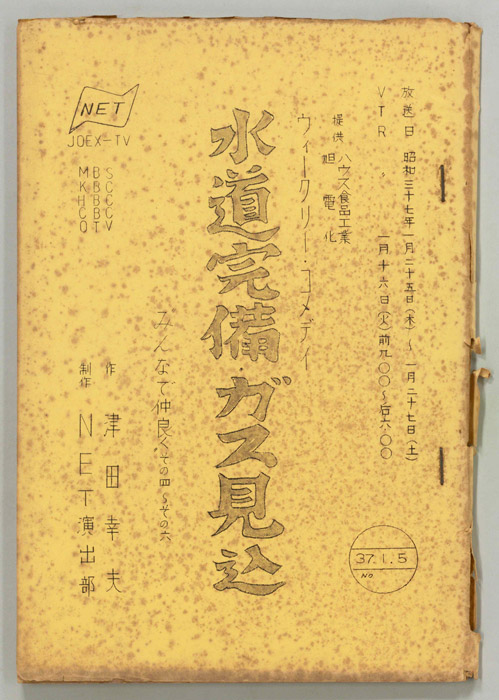 放送日 昭和三十七年一月二十五日(木)〜一月二十七日(土)
VTR 〃 一月十六日(火)前九〇〇〜后六〇〇
提供 ハウス食品工業
旭電化
ウィークリー・コメディ
水道完備・ガス見込
みんなで仲良くその四〜その六
作 津田幸夫
制作 NET演出部
NET
JOEX-TV
MBS
KBC
HBC
CBC
OTV
37.1.5
NO